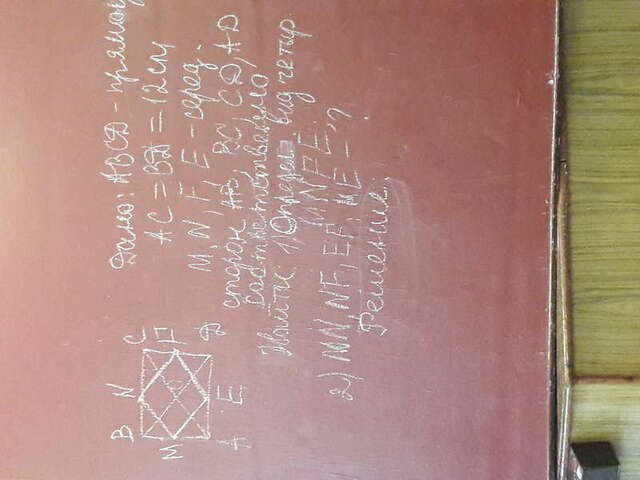 B N C
M F
A E D
Дано: ABCD - прямоу
AC = BD = 12 см
M, N, F, E - серед.
сторон AB, BC, CD, AD
Найти: 1) Определ. вид четыр.
MNFE;
2) MN, NF, EF, ME - ?
Решение: